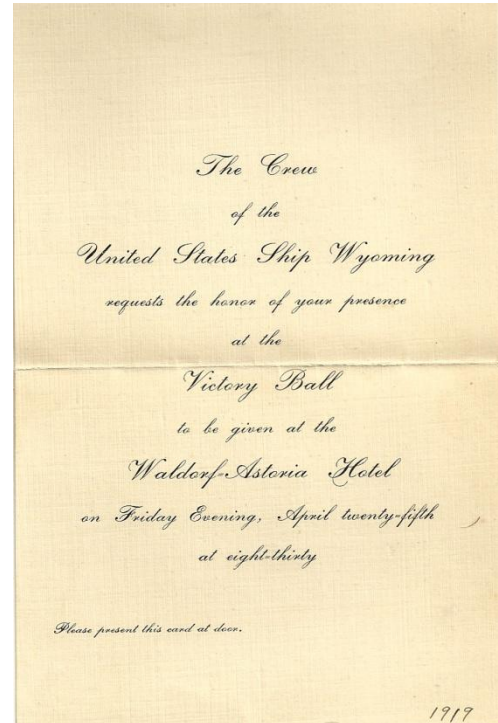 The Crew
of the
United States Ship Wyoming
requests the honor of your presence
at the
Victory Ball
to be given at the
Waldorf-Astoria Hotel
on Friday Evening, April twenty-fifth
at eight-thirty
Please present this card at door.
1919